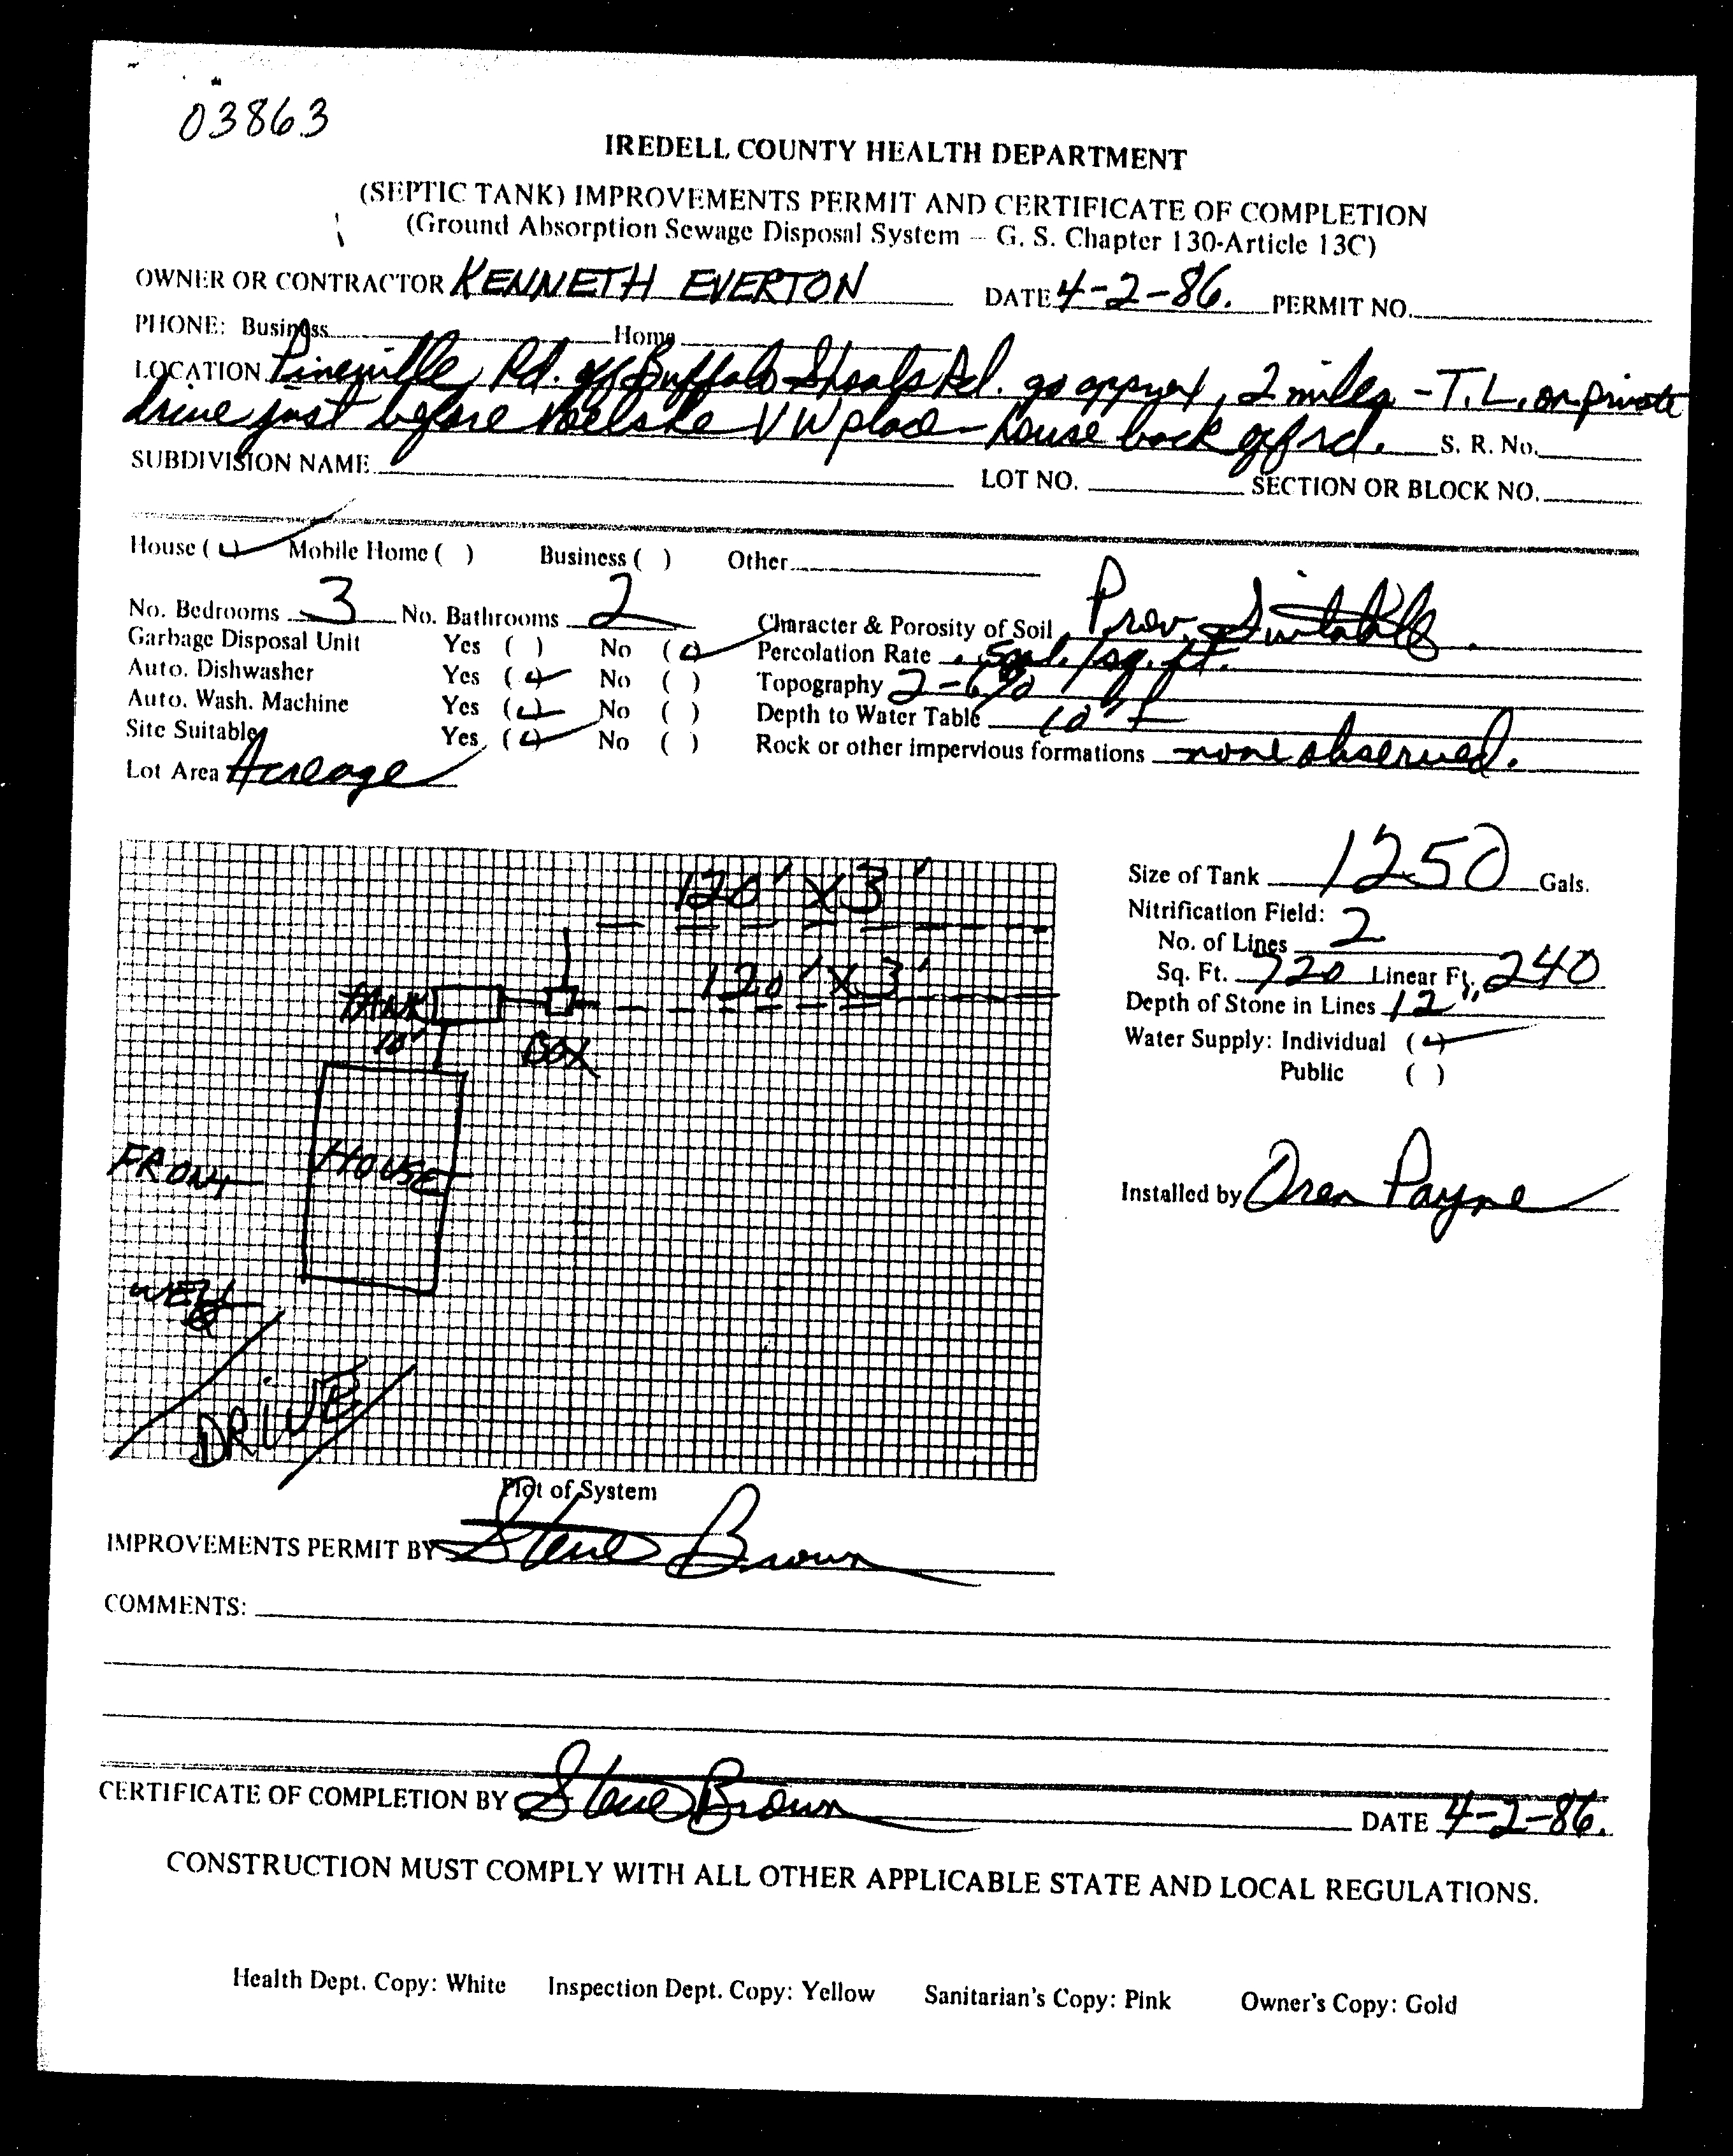 03863
IREDELL COUNTY HEALTH DEPARTMENT
(SEPTIC TANK) IMPROVEMENTS PERMIT AND CERTIFICATE OF COMPLETION
(Ground Absorption Sewage Disposal System – G. S. Chapter 130-Article 13C)
OWNER OR CONTRACTOR KENNETH EVERTON DATE 4-2-86. PERMIT NO.
PHONE: Business Home
LOCATION Pineville Rd. off Buffalo Shoals Rd. go approx. 2 miles - T.L. on private
drive just before VW place - house back off rd. S. R. No.
SUBDIVISION NAME LOT NO. SECTION OR BLOCK NO.
House (✓) Mobile Home ( ) Business ( ) Other
No. Bedrooms 3 No. Bathrooms 2 Character & Porosity of Soil Prov. Suitable.
Garbage Disposal Unit Yes ( ) No (✓) Percolation Rate .5gal./sq.ft.
Auto. Dishwasher Yes (✓) No ( ) Topography 2-6%
Auto. Wash. Machine Yes (✓) No ( ) Depth to Water Table 10'+
Site Suitable Yes (✓) No ( ) Rock or other impervious formations none observed.
Lot Area Acreage
120' X 3'
120' X 3'
TANK
10'
BOX
HOUSE
FRONT
WELL
DRIVE
Plot of System
Size of Tank 1250 Gals.
Nitrification Field:
No. of Lines 2
Sq. Ft. 720 Linear Ft. 240
Depth of Stone in Lines 12"
Water Supply: Individual (✓)
Public ( )
Installed by Oren Payne
IMPROVEMENTS PERMIT BY Steve Brown
COMMENTS:
CERTIFICATE OF COMPLETION BY Steve Brown DATE 4-2-86.
CONSTRUCTION MUST COMPLY WITH ALL OTHER APPLICABLE STATE AND LOCAL REGULATIONS.
Health Dept. Copy: White Inspection Dept. Copy: Yellow Sanitarian's Copy: Pink Owner's Copy: Gold